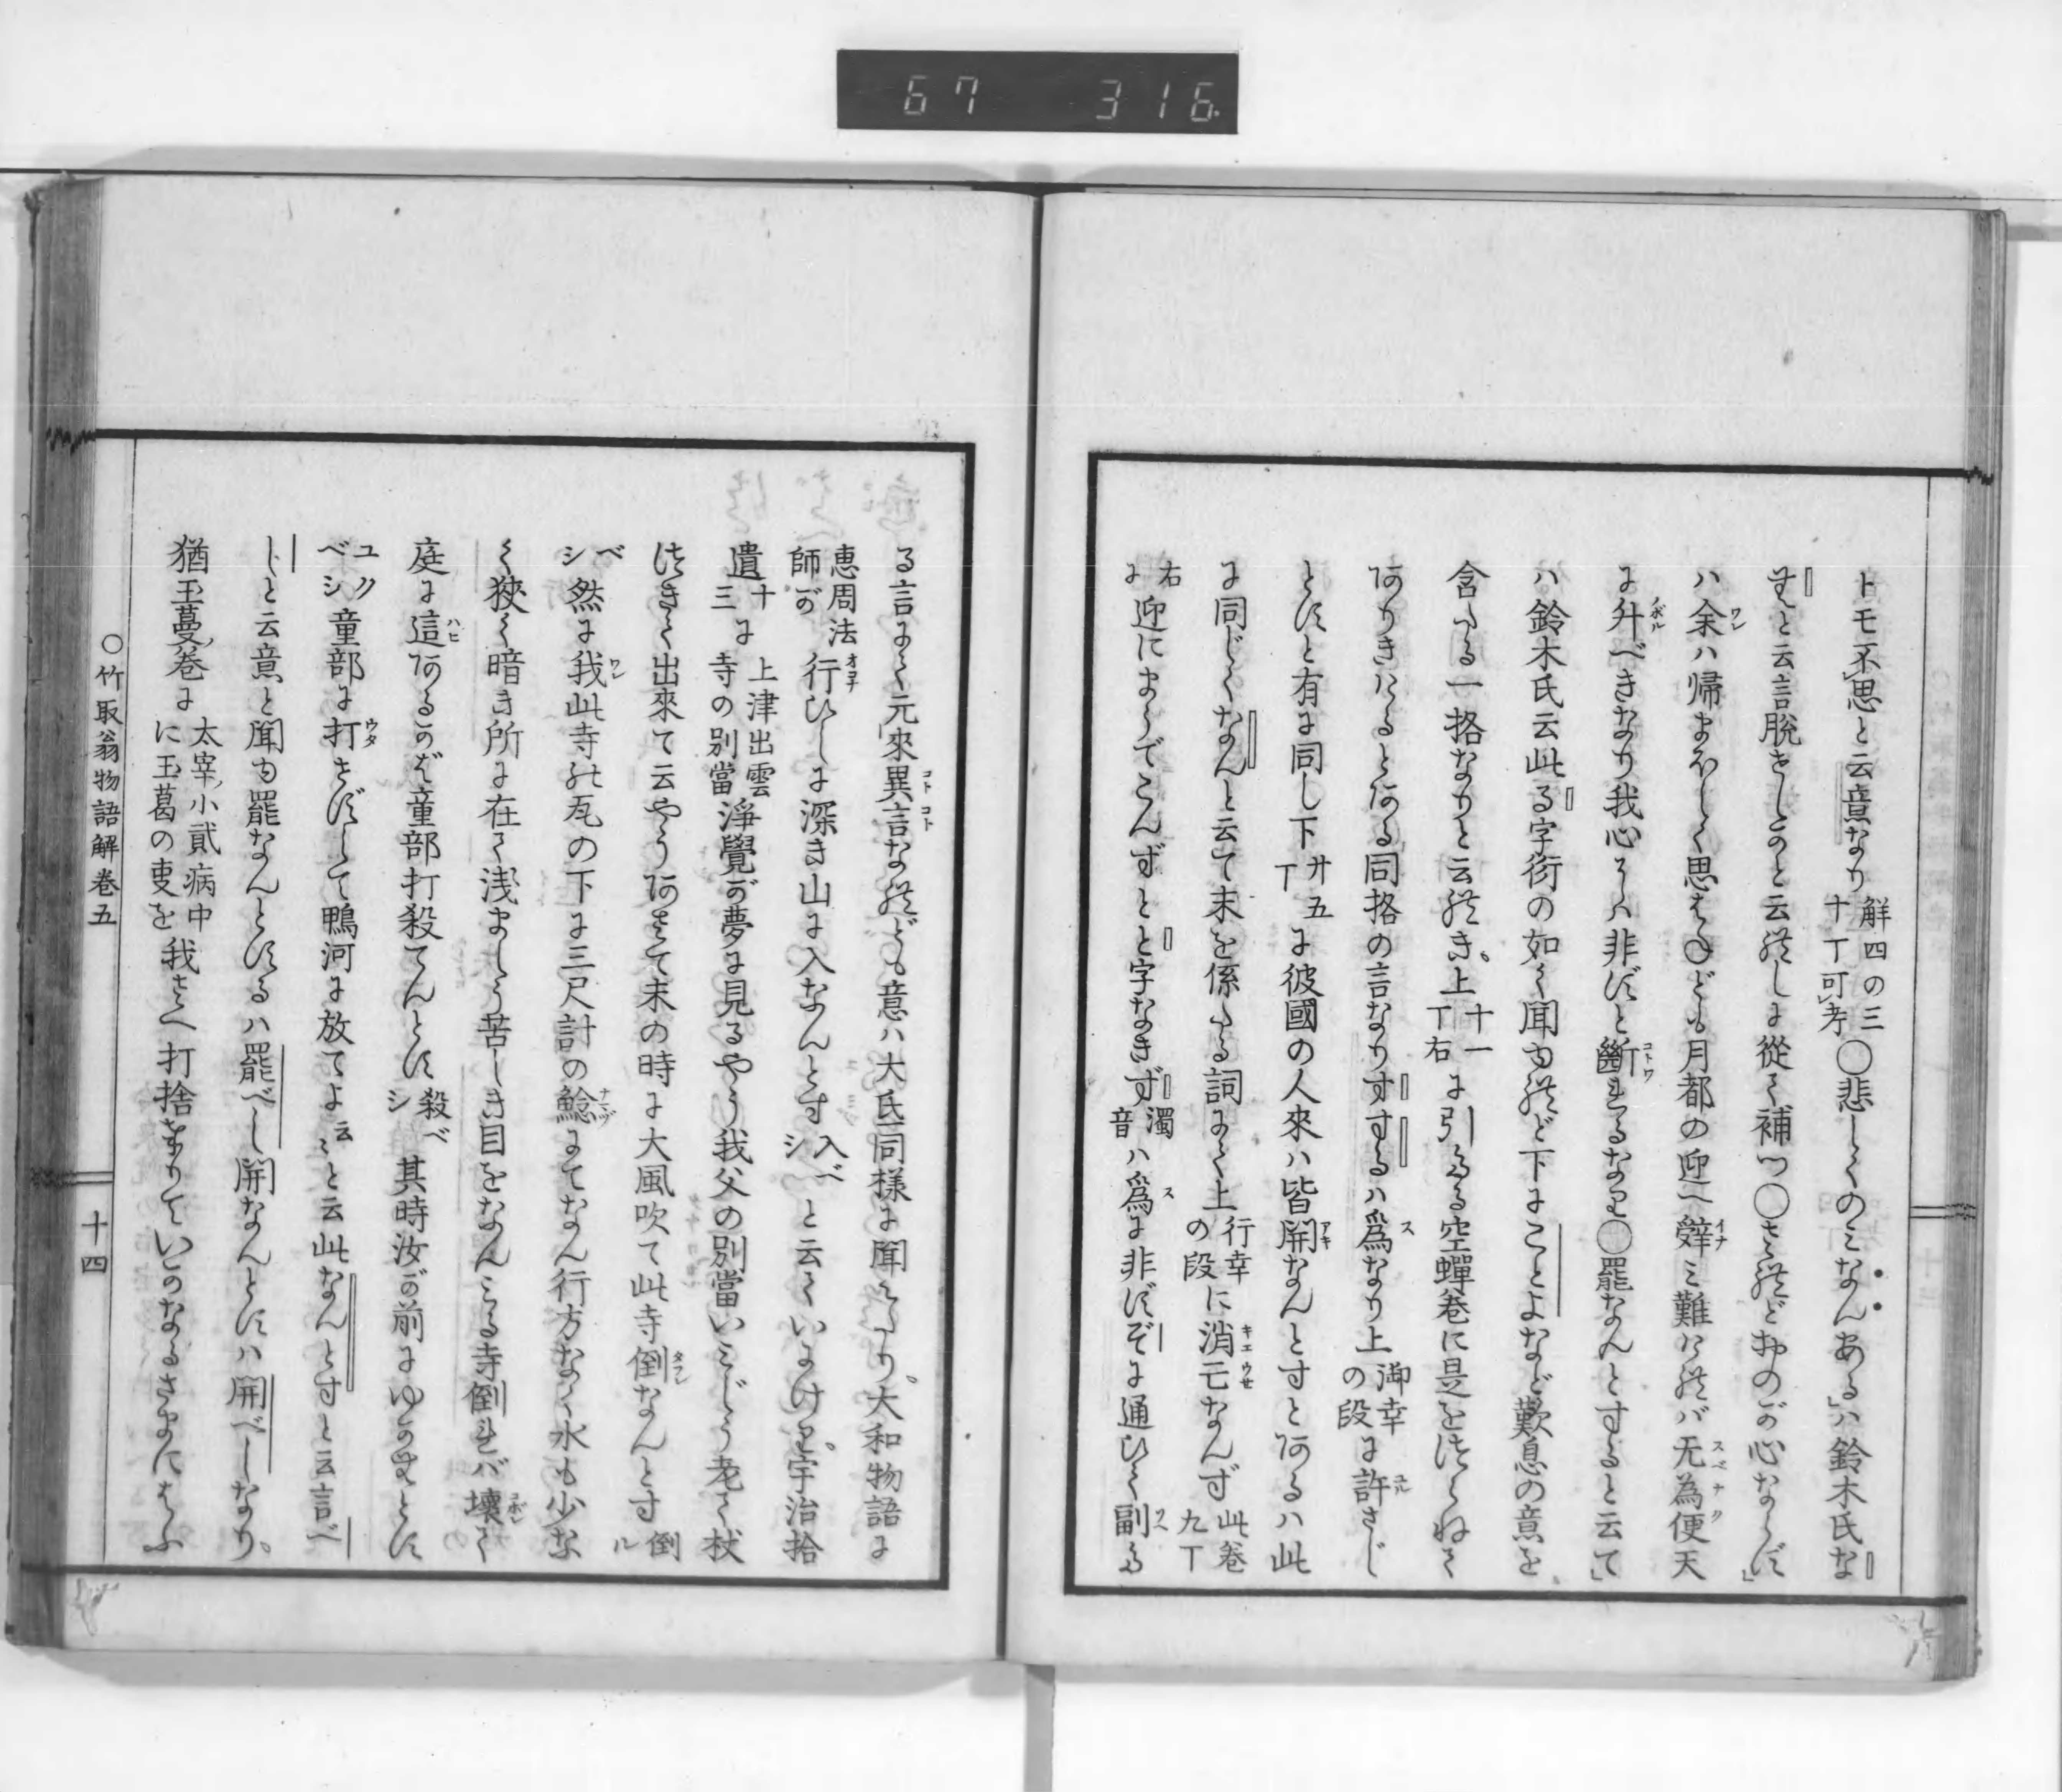 67 316
トモ不思と云意なり 解四の三十丁可考 ○悲しくのみなんある」ハ鈴木氏な
むと云言脱せしかと云れしに從て補つ○されどおのが心ならず」
ハ余ハ帰まほしく思はねども月都の迎へ辤み難ければ无為便天
に升べきなり我心にハ非ずと斷れるなり○罷なんとすると云て」
ハ鈴木氏云此る字衍の如く聞ゆれど下にことよなど歎息の意を
含たる一格なりと云れき上 十一丁右 に引たる空蟬巻に是をつくねて
ありきけるとある同格の言なりすするハ爲なり上 御幸の段 に許さじ
とすと有に同し下 廾五丁 に彼國の人來ハ皆開なんとすとあるハ此
に同じくなんと云て末を係たる詞にて上 行幸の段 に消亡なんず 此巻九丁
右に 迎にまうでこんずとと字なきず 濁音 ハ爲に非ずぞに通ひて副た
る言にて元來異言なれども意ハ大氐同様に聞えたり大和物語に
惠周法師が 行ひしに深き山に入なんとす 入べシ と云ていよけり宇治拾
遺 十三 に 上津出雲寺の別當 淨覺が夢に見るやう我父の別當いみじう老て杖
つきて出來て云やうあすて未の時に大風吹て此寺倒なんとす 倒ル
べシ 然に我此寺の瓦の下に三尺計の鯰にてなん行方なく水も少な
く狹く暗き所に在て浅ましう苦しき目をなんみる寺倒れバ壞て
庭に這あるかば童部打殺てんとす 殺べシ 其時汝が前にゆかむとす
ユクベシ 童部に打せずして鴨河に放てよ云〻と云此なんとすと云言べ
しと云意と聞ゆ罷なんとするハ罷べし開なんとすハ開べしなり
猶玉蔓巻に 太宰小貳病中に玉葛の叓を 我さへ打捨奉りていかなるさまにはふ
○竹取翁物語解巻五
十四